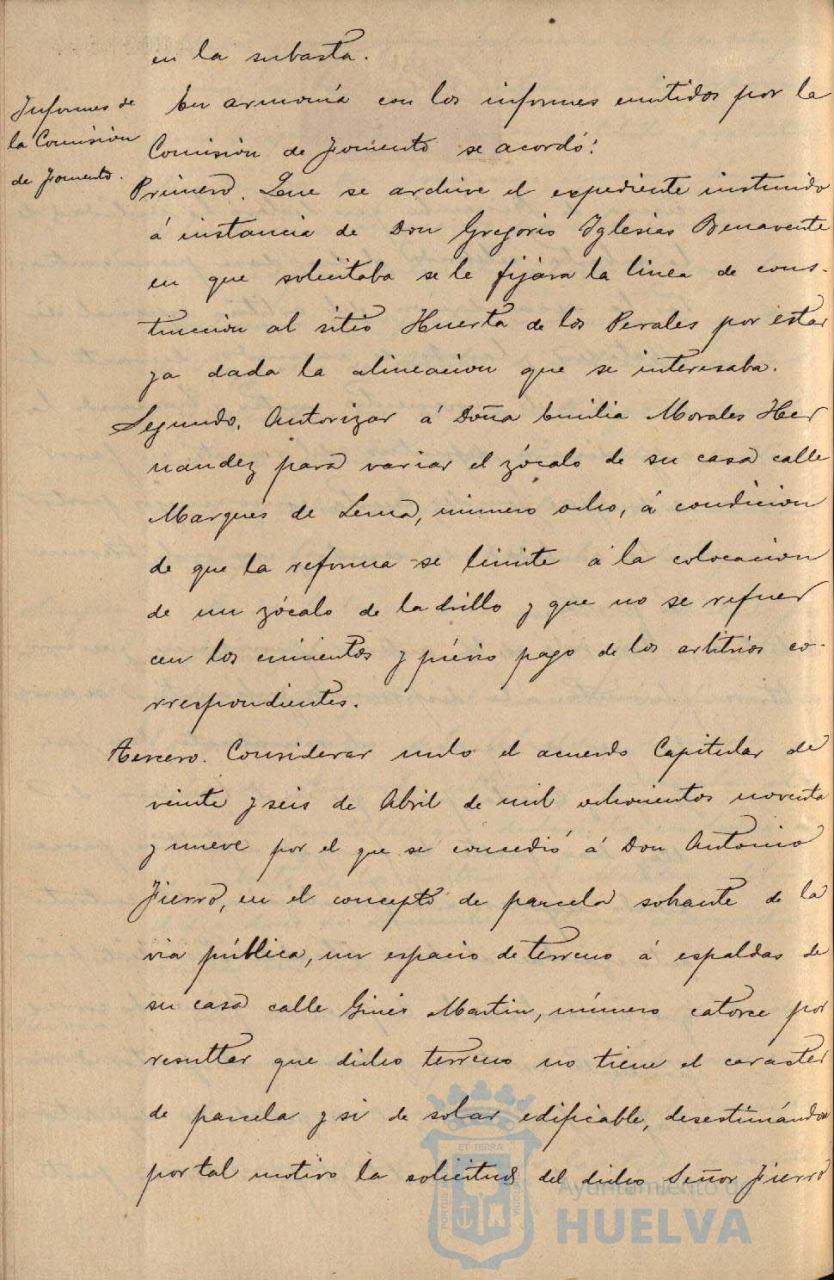 en la subasta.
Informes de
la Comisión
de fomento.
En armonía con los informes emitidos por la
Comisión de fomento se acordó:
Primero. Que se archive el expediente instruido
á instancia de Don Gregorio Iglesias Benavente
en que solicitaba se le fijara la linea de cons-
trucción al sitio Huerta de los Perales por estar
ya dada la alineacion que se interesaba.
Segundo. Autorizar á Doña Emilia Morales Her
nandez para variar el zócalo de su casa calle
Marques de Lema, número ocho, á condicion
de que la reforma se limite á la colocacion
de un zócalo de ladrillo y que no se refuer
cen los cimientos y prévio pago de los arbitrios co-
rrespondientes.
Tercero. Considerar nulo el acuerdo Capitular de
veinte y seis de Abril de mil ochocientos noventa
y nueve por el que se concedió á Don Antonio
Fierro, en el concepto de parcela sobrante de la
via pública, un espacio de terreno á espaldas de
su casa calle Ginés Martin, número catorce por
resultar que dicho terreno no tiene el caracter
de parcela y si de solar edificable, desestimándose
por tal motivo la solicitud del dicho Señor Fierro
ET TERRA
Ayuntamiento de
HUELVA